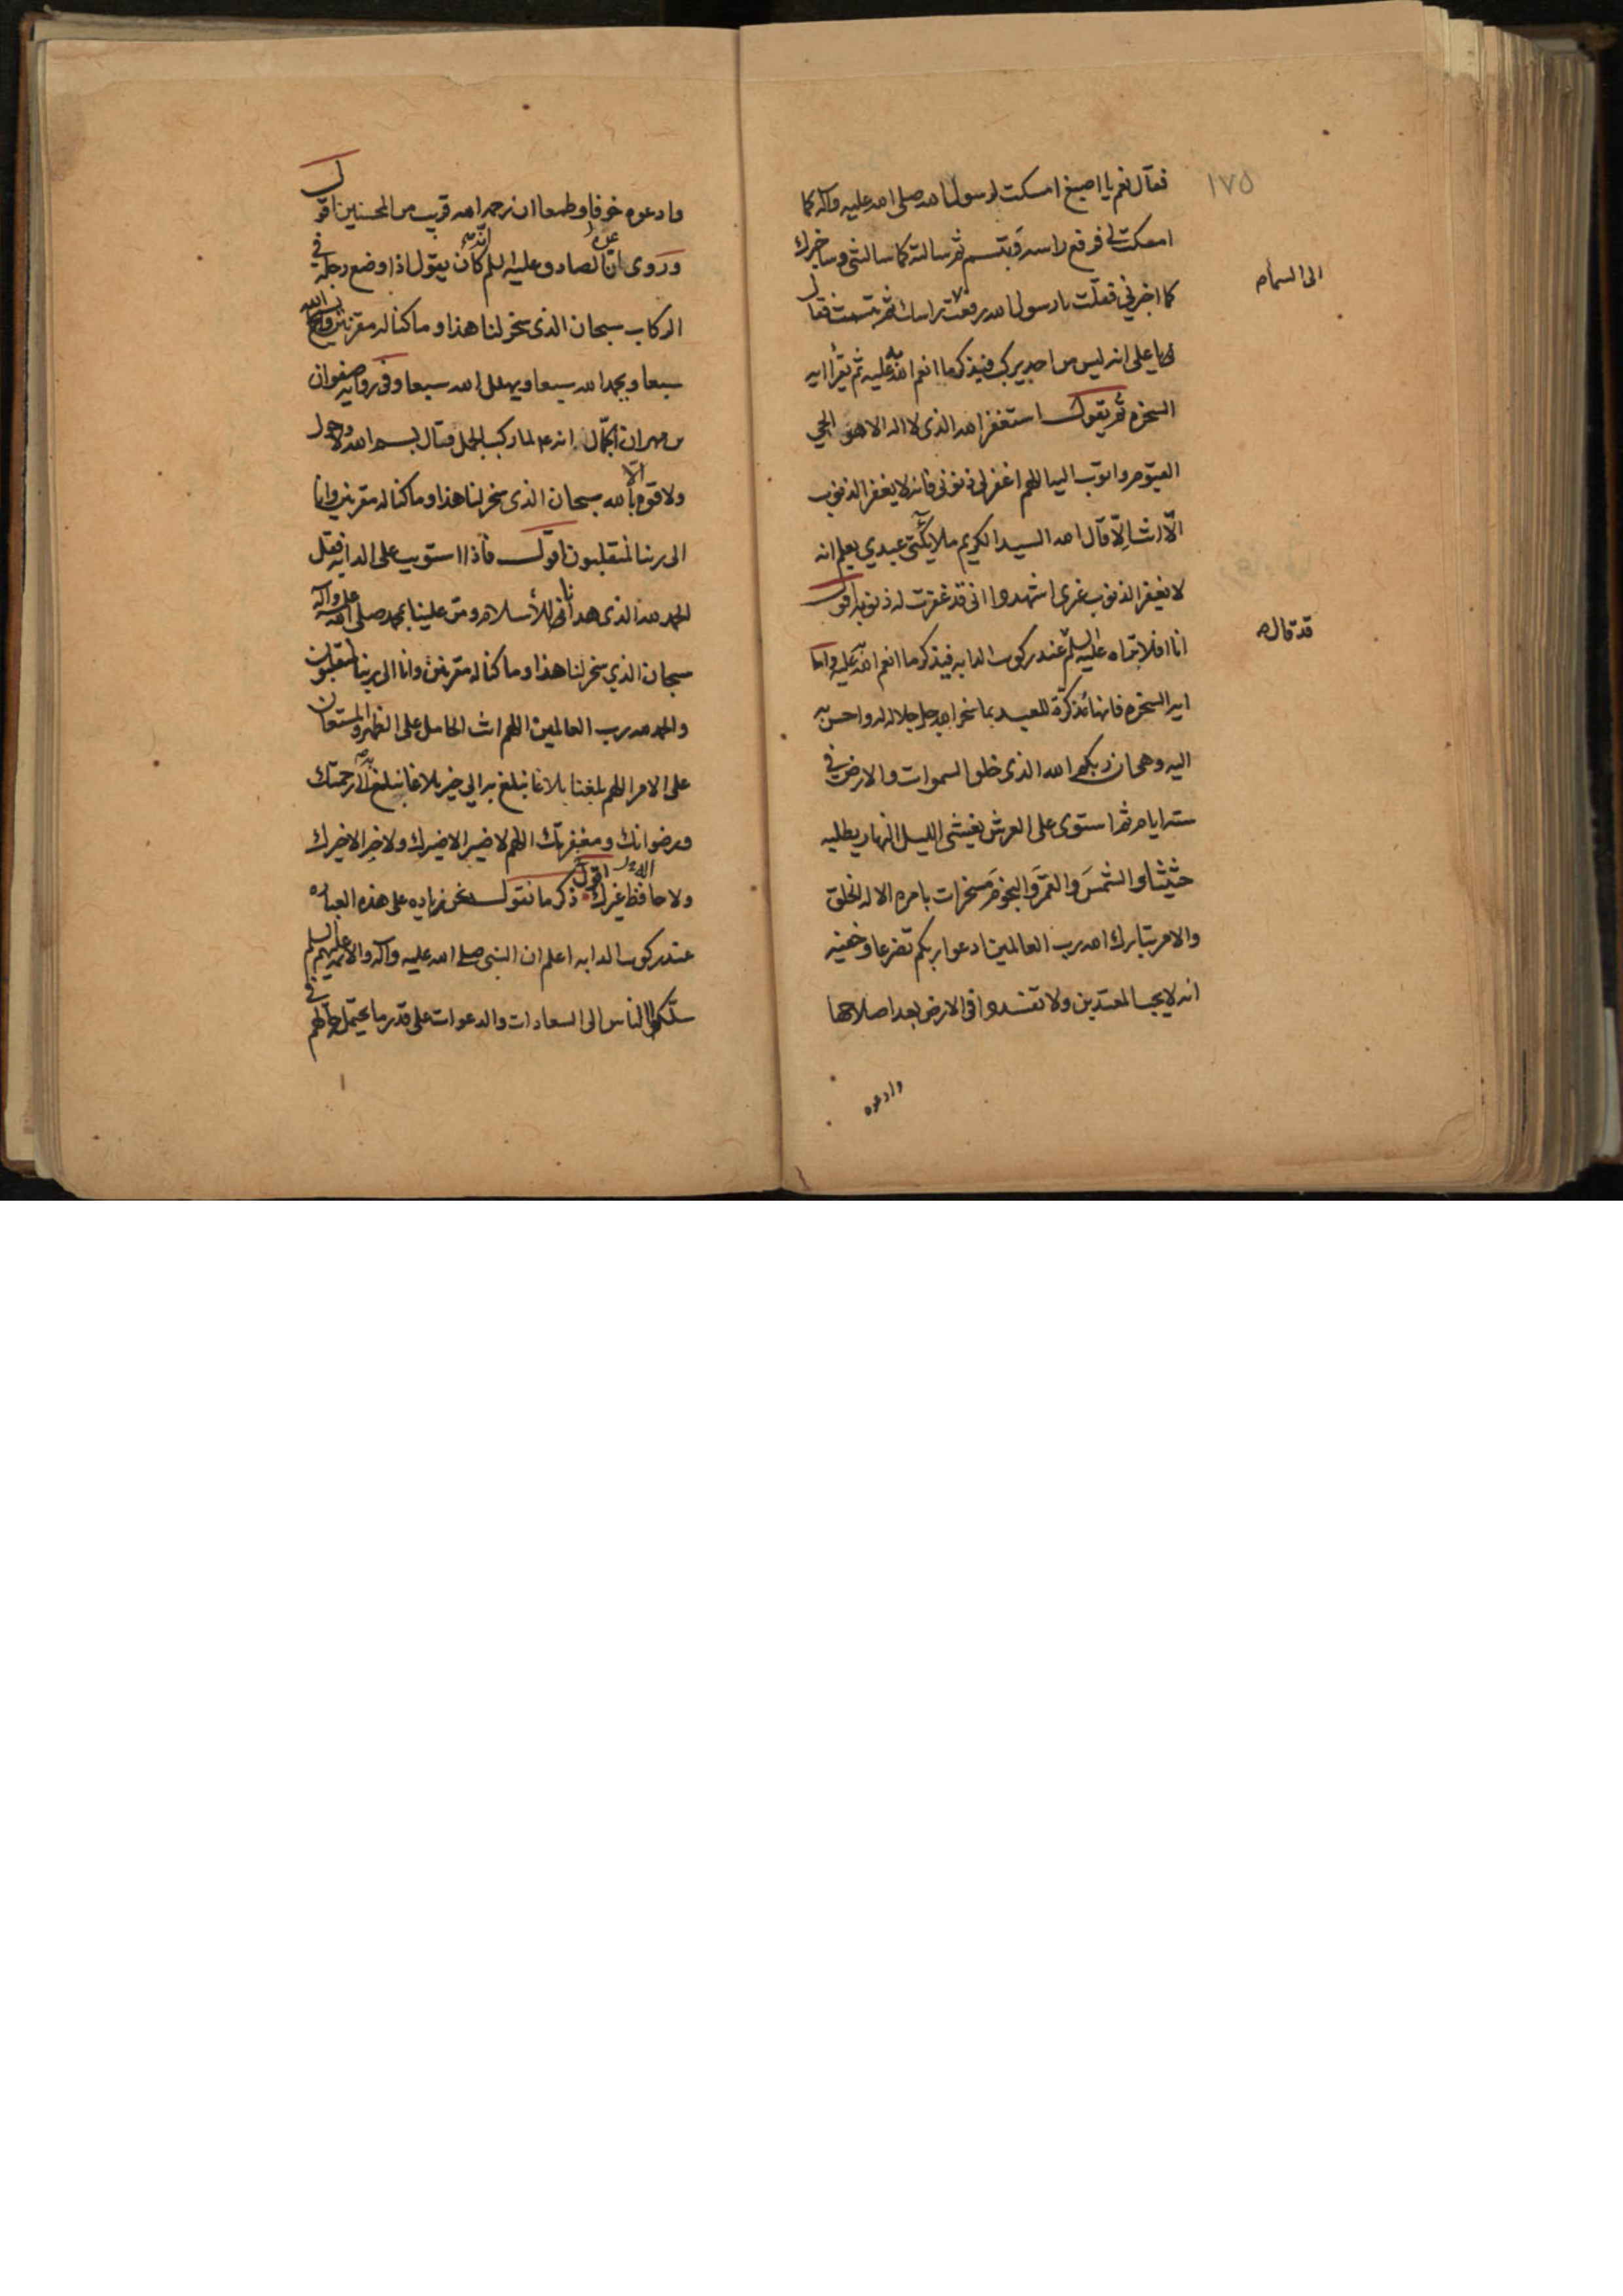 ١٧٥
فقال نعم يا اصبغ امسكت لرسول الله صلى الله عليه وآله كما
امسكت لي فرفع راسه فتبسم ثم سالته كما سالتني وساخبرك
كما اخبرني فقلت يا رسول الله رفعت راسك ثم تبسمت فقال
الى السماء
يا علي انه ليس من احد يركب فيذكر ما انعم الله به عليه ثم يقرأ اية
السخرة ثم يقول استغفر الله الذي لا اله الا هو الحي
القيوم واتوب اليه اللهم اغفر لي ذنوبي فانه لا يغفر الذنوب
الّا انت الّا قال الله السيد الكريم ملايكتي عبدي يعلم انه
لا يغفر الذنوب غيري اشهدوا اني قد غفرت له ذنوبه اقول
قد قاله
انا افلا تراه عليه السلم عند ركوب الدابه فيذكر ما انعم الله به عليه واما
اية السخرة فانها تذكرة للعبد بما سخر الله جل جلاله له واحسن به
اليه وهي ان ربكم الله الذي خلق السموات والارض في
ستة ايام ثم استوى على العرش يغشي الليل النهار يطلبه
حثيثا والشمسَ والقمرَ والنجومَ مسخرات بامره الا له الخلق
والامر تبارك الله رب العالمين ادعوا ربكم تضرعا وخفيه
انه لا يحب المعتدين ولا تفسدوا في الارض بعد اصلاحها
وادعوه
وادعوه خوفا وطمعا ان رحمة الله قريب من المحسنين اقول
وروي ان الصادق عليه السلم انه كان يقول اذا وضع رجله في
الركاب سبحان الذي سخر لنا هذا وما كنا له مقرنين ويسبح الله
سبعا ويحمد الله سبعا ويهلل الله سبعا وفي رواية صفوان
بن مهران الجمّال انه ع لما ركب الجمل فقال بسم الله ولا حول
ولا قوة الّا بالله سبحان الذي سخر لنا هذا وما كنا له مقرنين وانا
الى ربنا لمنقلبون اقول فاذا استويت على الدابه فقل
الحمد لله الذي هدانا للأسلام ومن علينا بمحمد صلى الله عليه وآله
سبحان الذي سخر لنا هذا وما كنا له مقرنين وانا الى ربنا لمنقلبون
والحمد لله رب العالمين اللهم انت الحامل على الظهر والمستعان
على الامر اللهم بلغنا بلاغا نبلغ به الى خير بلاغا نبلغ به الى رحمتك
ورضوانك ومغفرتك اللهم لا ضير الا ضيرك ولا خير الا خيرك
ولا حافظ غيرك اقول ذكر ما نقوله نحن زياده على هذه العباره
عند ركوب الدابه اعلم ان النبي صلى الله عليه وآله والائمة عليهم السلم
سلكوا بالناس الى السعادات والدعوات على قدر ما يحتمل حالهم في